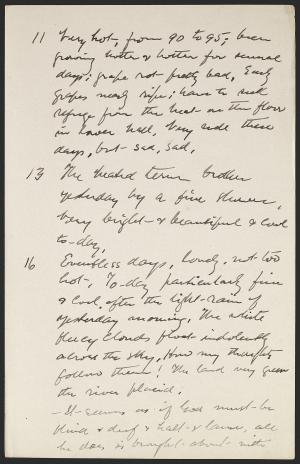 11 Very hot, from 90 to 95; been
growing hotter & hotter for several
days; grape rot pretty bad. Early
grapes nearly ripe; have to seek
refuge from the heat on the floor
in lower hall. Very ride these
days, but sad, sad.
13 The heated term broken
yesterday by a fine shower.
Very bright & beautiful & cool
to-day.
16 Eventless days, lovely, not too
hot. To-day particularly fine
& cool, after the light rain of
yesterday morning. The white
fleecy clouds float indolently
across the sky. How my thoughts
follow them! The land very green
the river placid.
- It seems as if God must be
blind & deaf & halt & lame, all
he does is brought about with